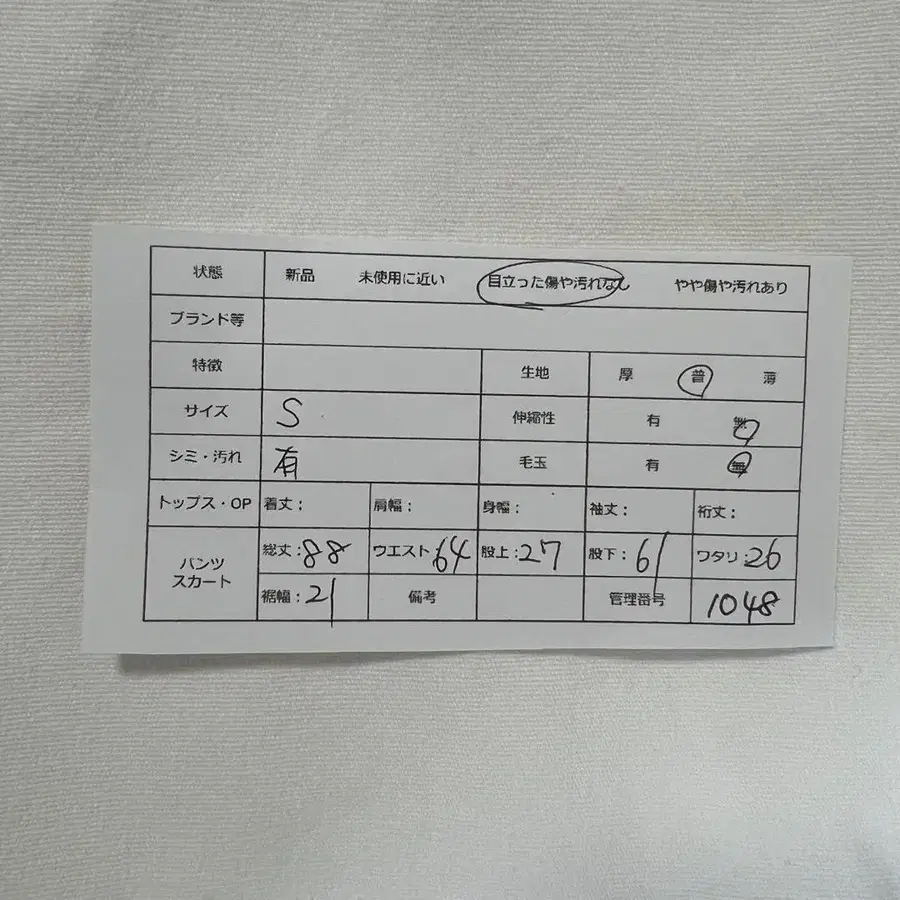 状態 新品 未使用に近い 目立った傷や汚れなし やや傷や汚れあり
ブランド等
特徴 生地 厚 普 薄
サイズ S 伸縮性 有 無
シミ・汚れ 有 毛玉 有 無
トップス・OP 着丈: 肩幅: 身幅: 袖丈: 裄丈:
パンツ スカート
総丈:88 ウエスト:64 股上:27 股下:61 ワタリ:26
裾幅:21 備考 管理番号 1048